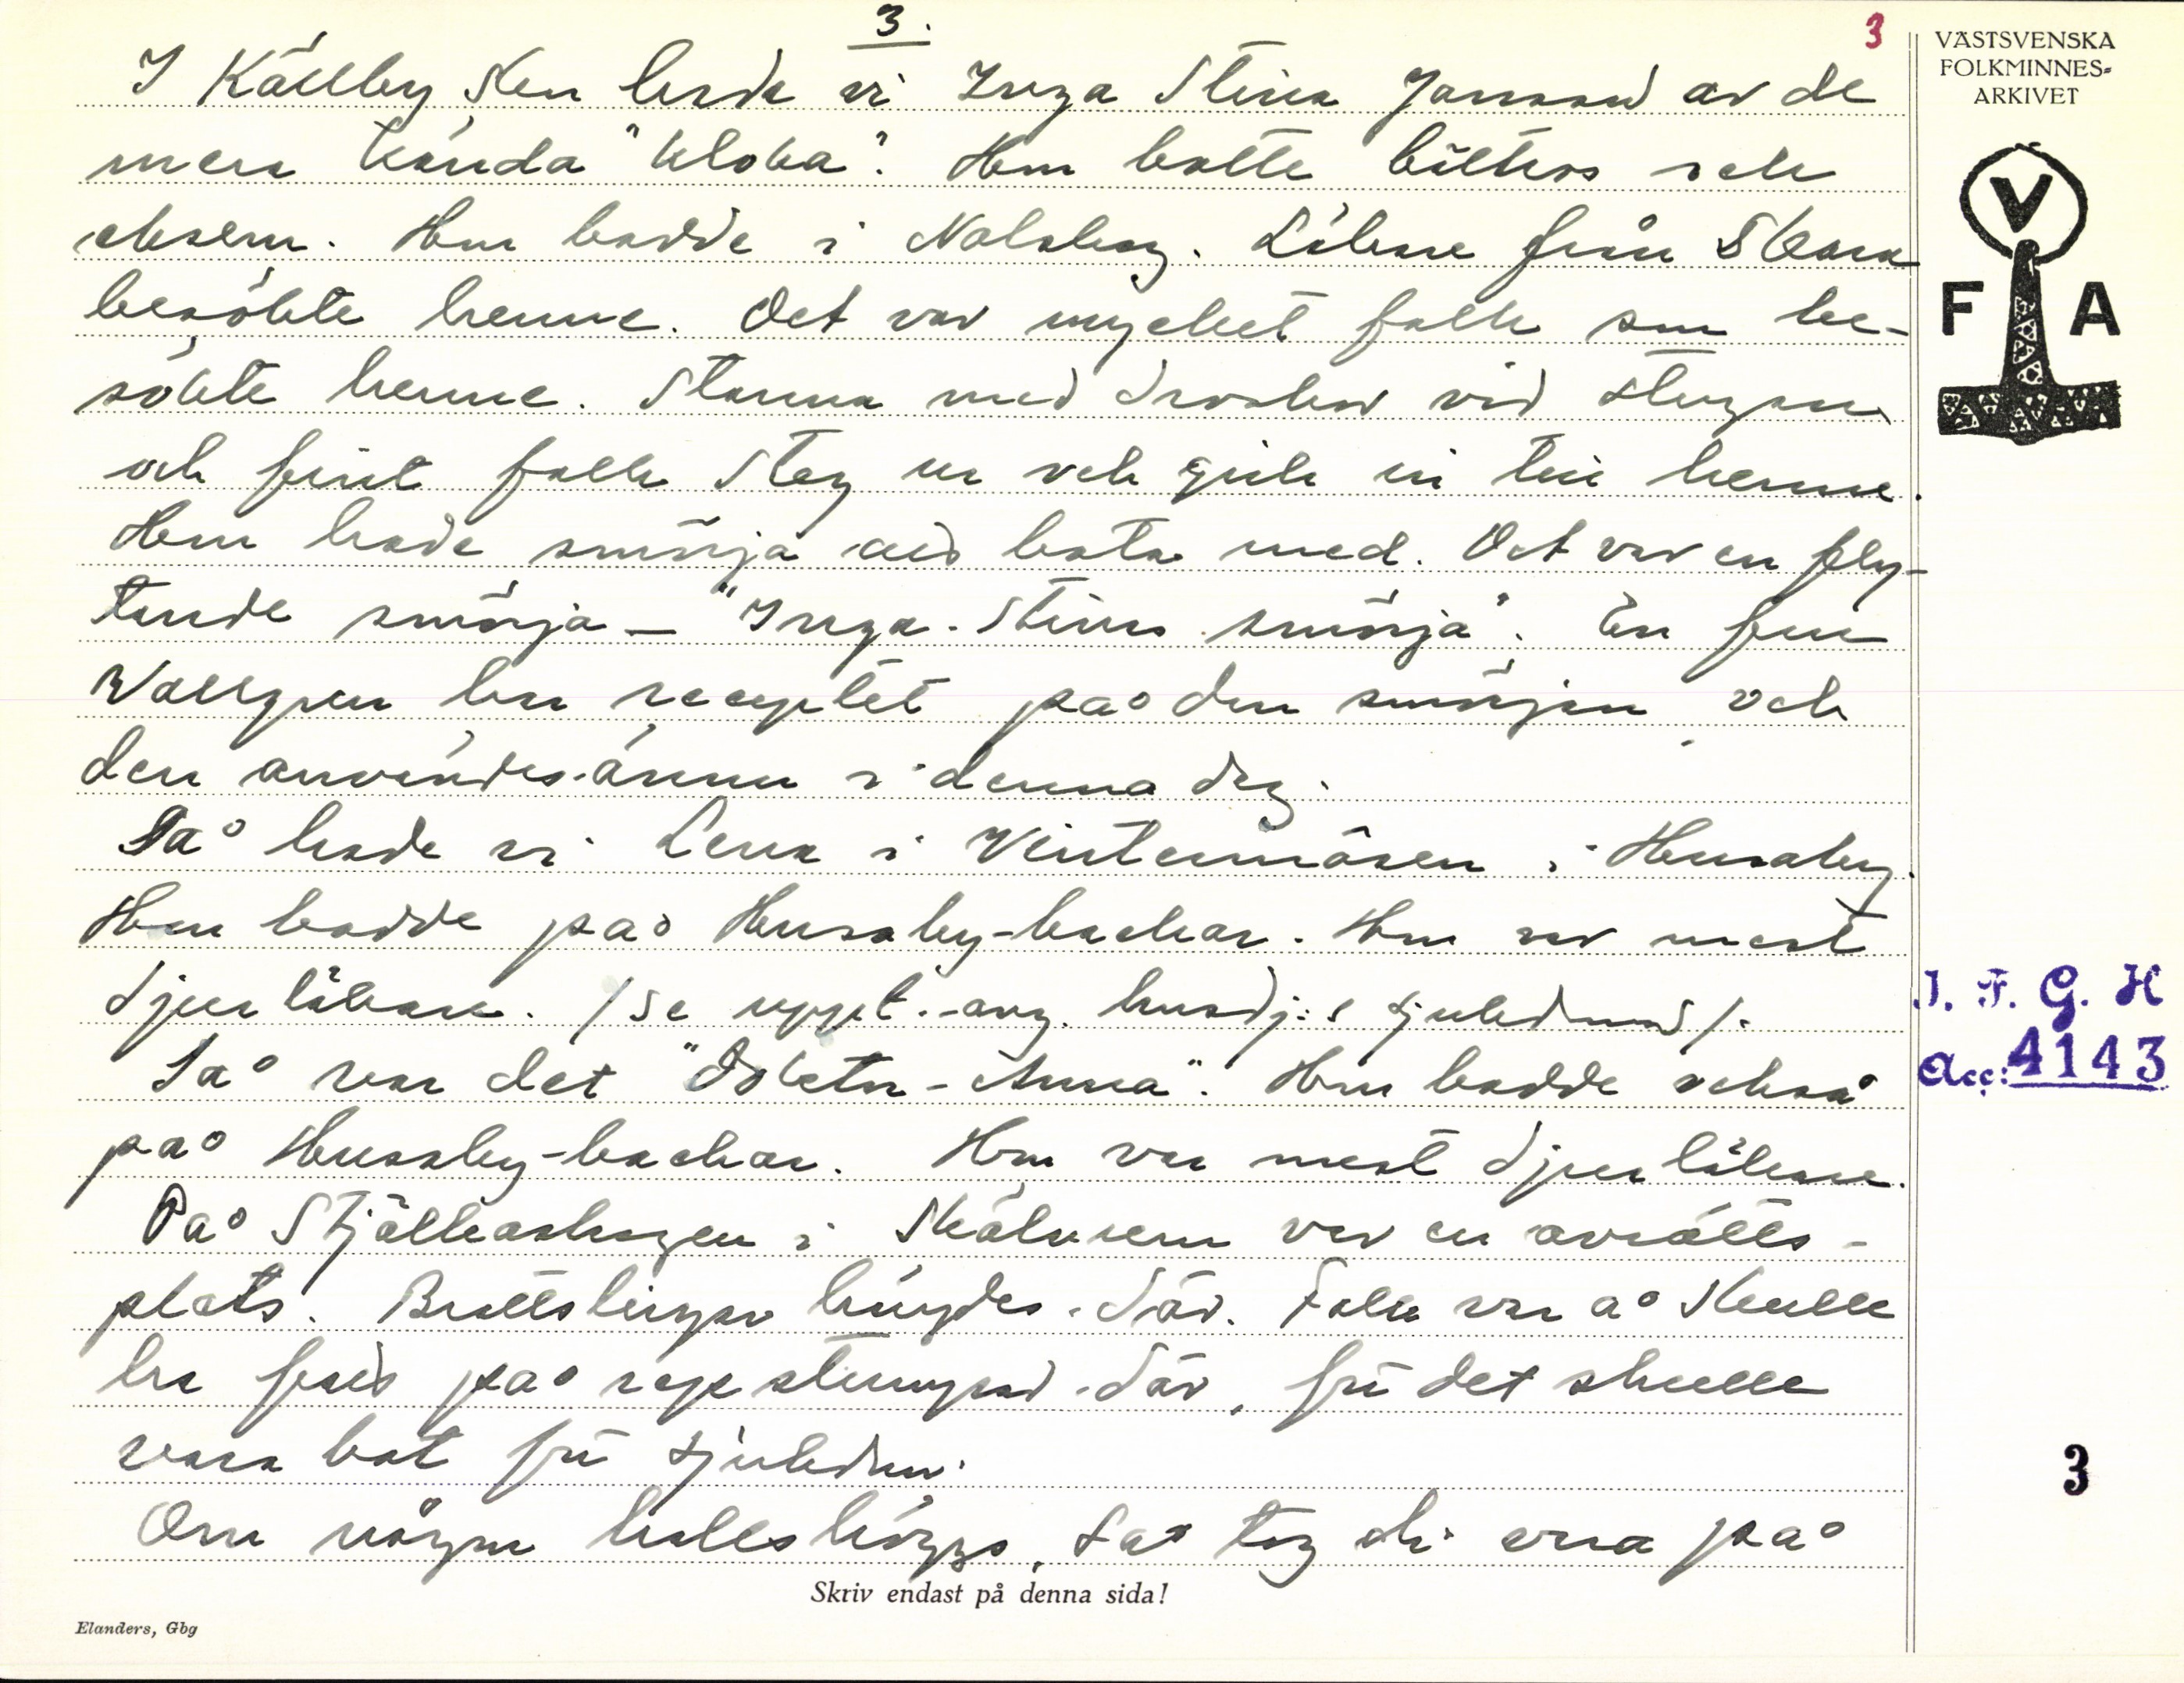 3.
3
I Källby sen hade vi Inga Stina Jansson av de
mera kända "kloka". Hon botte bältros och
eksem. Hon bodde i Nolskog. Läkare från Skara
besökte henne. Det var mycket folk som be-
sökte henne. Stanna med droskor vid stugan
och fint folk steg ur och gick in till henne.
Hon hade smörja att bota med. Det var en fly-
tande smörja - "Inga-Stinas smörja". En fru
Wallgren har receptet på den smörjan och
den användes ännu i denna dag.
Så hade vi Lena i Vintermåsen i Husaby.
Hon bodde på Husaby-backar. Hon var mest
djurläkare. /Se uppt.-ang. husdj:s sjukdomar/.
Så var det "Doktor-Anna". Hon bodde också
på Husaby-backar. Hon var mest djurläkare.
På Stjälkaskogen i Skälvum var en avrätts-
plats. Brottslingar hängdes där. Folk var å skulle
ha fatt på repstumpar där, för det skulle
vara bot för sjukdom.
Om någon halshöggs, så tog di vara på
Skriv endast på denna sida!
Elanders, Gbg
VÄSTSVENSKA
FOLKMINNES-
ARKIVET
V
F A
I. F. G. H
Acc: 4143
3